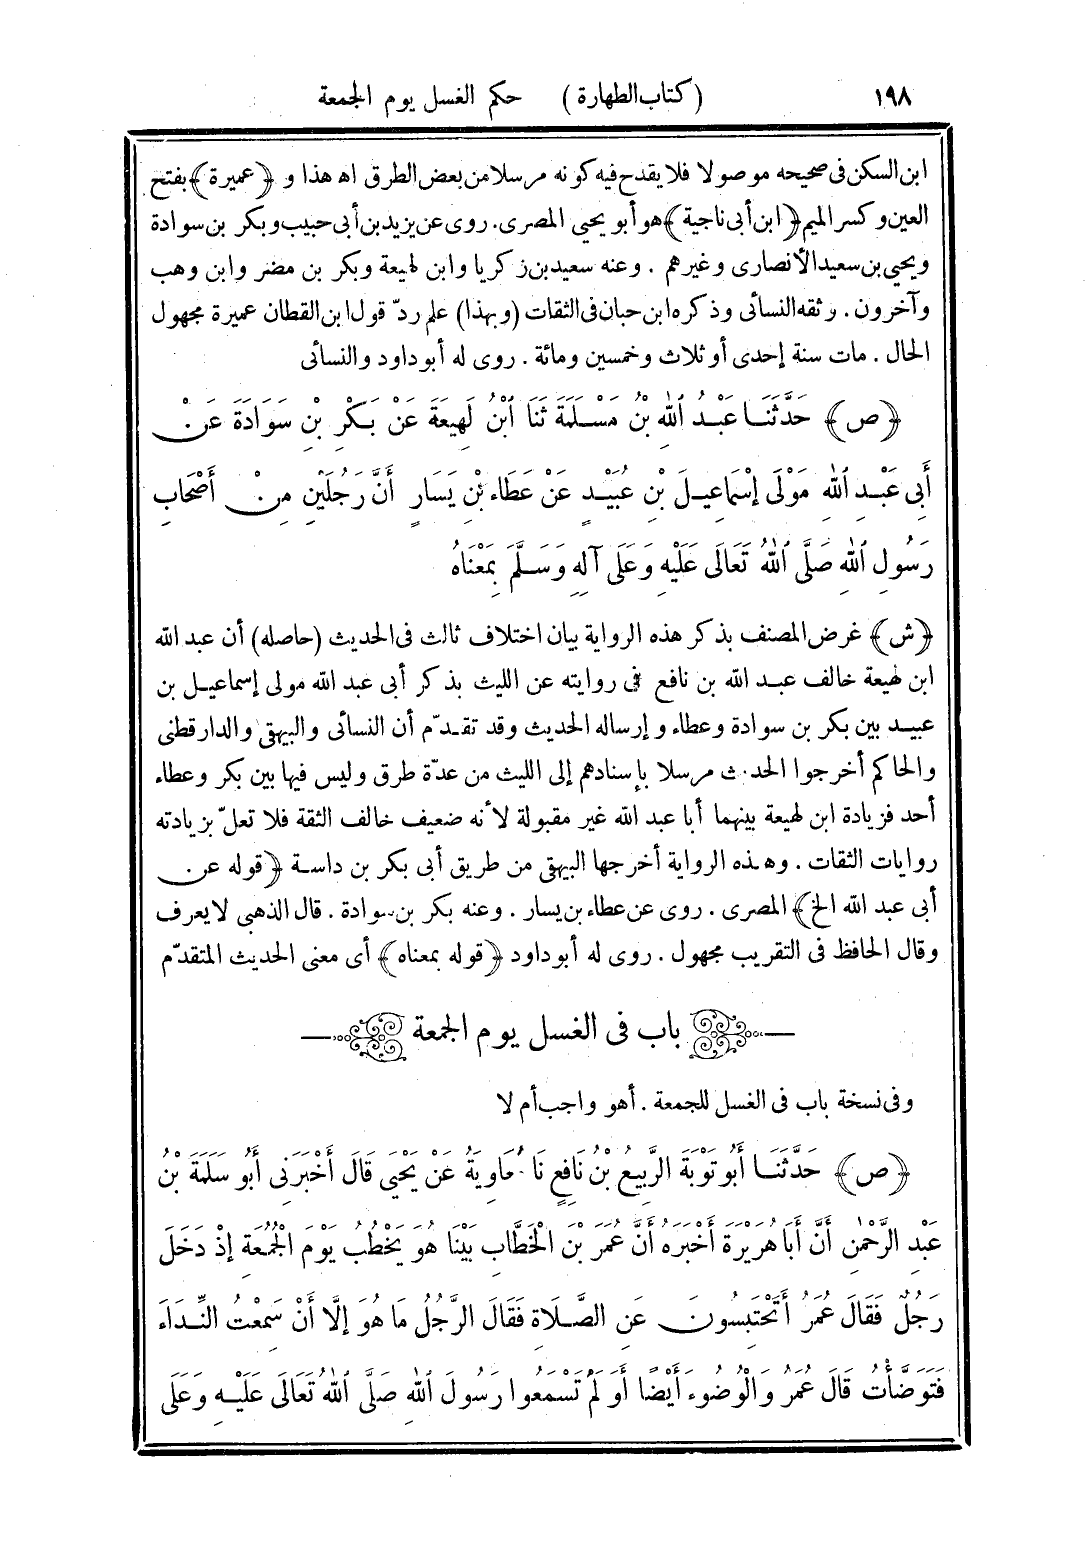 ١٩٨ (كتاب الطهارة) حكم الغسل يوم الجمعة
ابن السكن فى صحيحه موصولا فلا يقدح فيه كونه مرسلا من بعض الطرق اه هذا و ﴿عميرة﴾ بفتح
العين وكسر الميم ﴿ابن أبى ناجية﴾ هو أبو يحيى المصرى. روى عن يزيد بن أبى حبيب وبكر بن سوادة
ويحيى بن سعيد الأنصارى وغيرهم . وعنه سعيد بن زكريا وابن لهيعة وبكر بن مضر وابن وهب
وآخرون . وثقه النسائى وذكره ابن حبان فى الثقات (وبهذا) علم ردّ قول ابن القطان عميرة مجهول
الحال . مات سنة إحدى أو ثلاث وخمسين ومائة . روى له أبو داود والنسائى
﴿ص﴾ حَدَّثَنَا عَبْدُ اللهِ بْنُ مَسْلَمَةَ ثَنَا ابْنُ لَهِيعَةَ عَنْ بَكْرِ بْنِ سَوَادَةَ عَنْ
أَبِى عَبْدِ اللهِ مَوْلَى إِسْمَاعِيلَ بْنِ عُبَيْدٍ عَنْ عَطَاءِ بْنِ يَسَارٍ أَنَّ رَجُلَيْنِ مِنْ أَصْحَابِ
رَسُولِ اللهِ صَلَّى اللهُ تَعَالَى عَلَيْهِ وَعَلَى آلِهِ وَسَلَّمَ بِمَعْنَاهُ
﴿ش﴾ غرض المصنف بذكر هذه الرواية بيان اختلاف ثالث فى الحديث (حاصله) أن عبد الله
ابن لهيعة خالف عبد الله بن نافع فى روايته عن الليث بذكر أبى عبد الله مولى إسماعيل بن
عبيد بين بكر بن سوادة وعطاء وإرساله الحديث وقد تقدّم أن النسائى والبيهقى والدارقطنى
والحاكم أخرجوا الحديث مرسلا بإسنادهم إلى الليث من عدّة طرق وليس فيها بين بكر وعطاء
أحد فزيادة ابن لهيعة بينهما أبا عبد الله غير مقبولة لأنه ضعيف خالف الثقة فلا تعلّ بزيادته
روايات الثقات . وهذه الرواية أخرجها البيهقى من طريق أبى بكر بن داسة ﴿قوله عن
أبى عبد الله الخ﴾ المصرى . روى عن عطاء بن يسار . وعنه بكر بن سوادة . قال الذهبى لا يعرف
وقال الحافظ فى التقريب مجهول . روى له أبو داود ﴿قوله بمعناه﴾ أى معنى الحديث المتقدّم
باب فى الغسل يوم الجمعة
وفى نسخة باب فى الغسل للجمعة . أهو واجب أم لا
﴿ص﴾ حَدَّثَنَا أَبُو تَوْبَةَ الرَّبِيعُ بْنُ نَافِعٍ نَا مُعَاوِيَةُ عَنْ يَحْيَى قَالَ أَخْبَرَنِى أَبُو سَلَمَةَ بْنُ
عَبْدِ الرَّحْمٰنِ أَنَّ أَبَا هُرَيْرَةَ أَخْبَرَهُ أَنَّ عُمَرَ بْنَ الْخَطَّابِ بَيْنَا هُوَ يَخْطُبُ يَوْمَ الْجُمُعَةِ إِذْ دَخَلَ
رَجُلٌ فَقَالَ عُمَرُ أَتَحْتَبِسُونَ عَنِ الصَّلَاةِ فَقَالَ الرَّجُلُ مَا هُوَ إِلَّا أَنْ سَمِعْتُ النِّدَاءَ
فَتَوَضَّأْتُ قَالَ عُمَرُ وَالْوُضُوءَ أَيْضًا أَوَ لَمْ تَسْمَعُوا رَسُولَ اللهِ صَلَّى اللهُ تَعَالَى عَلَيْهِ وَعَلَى